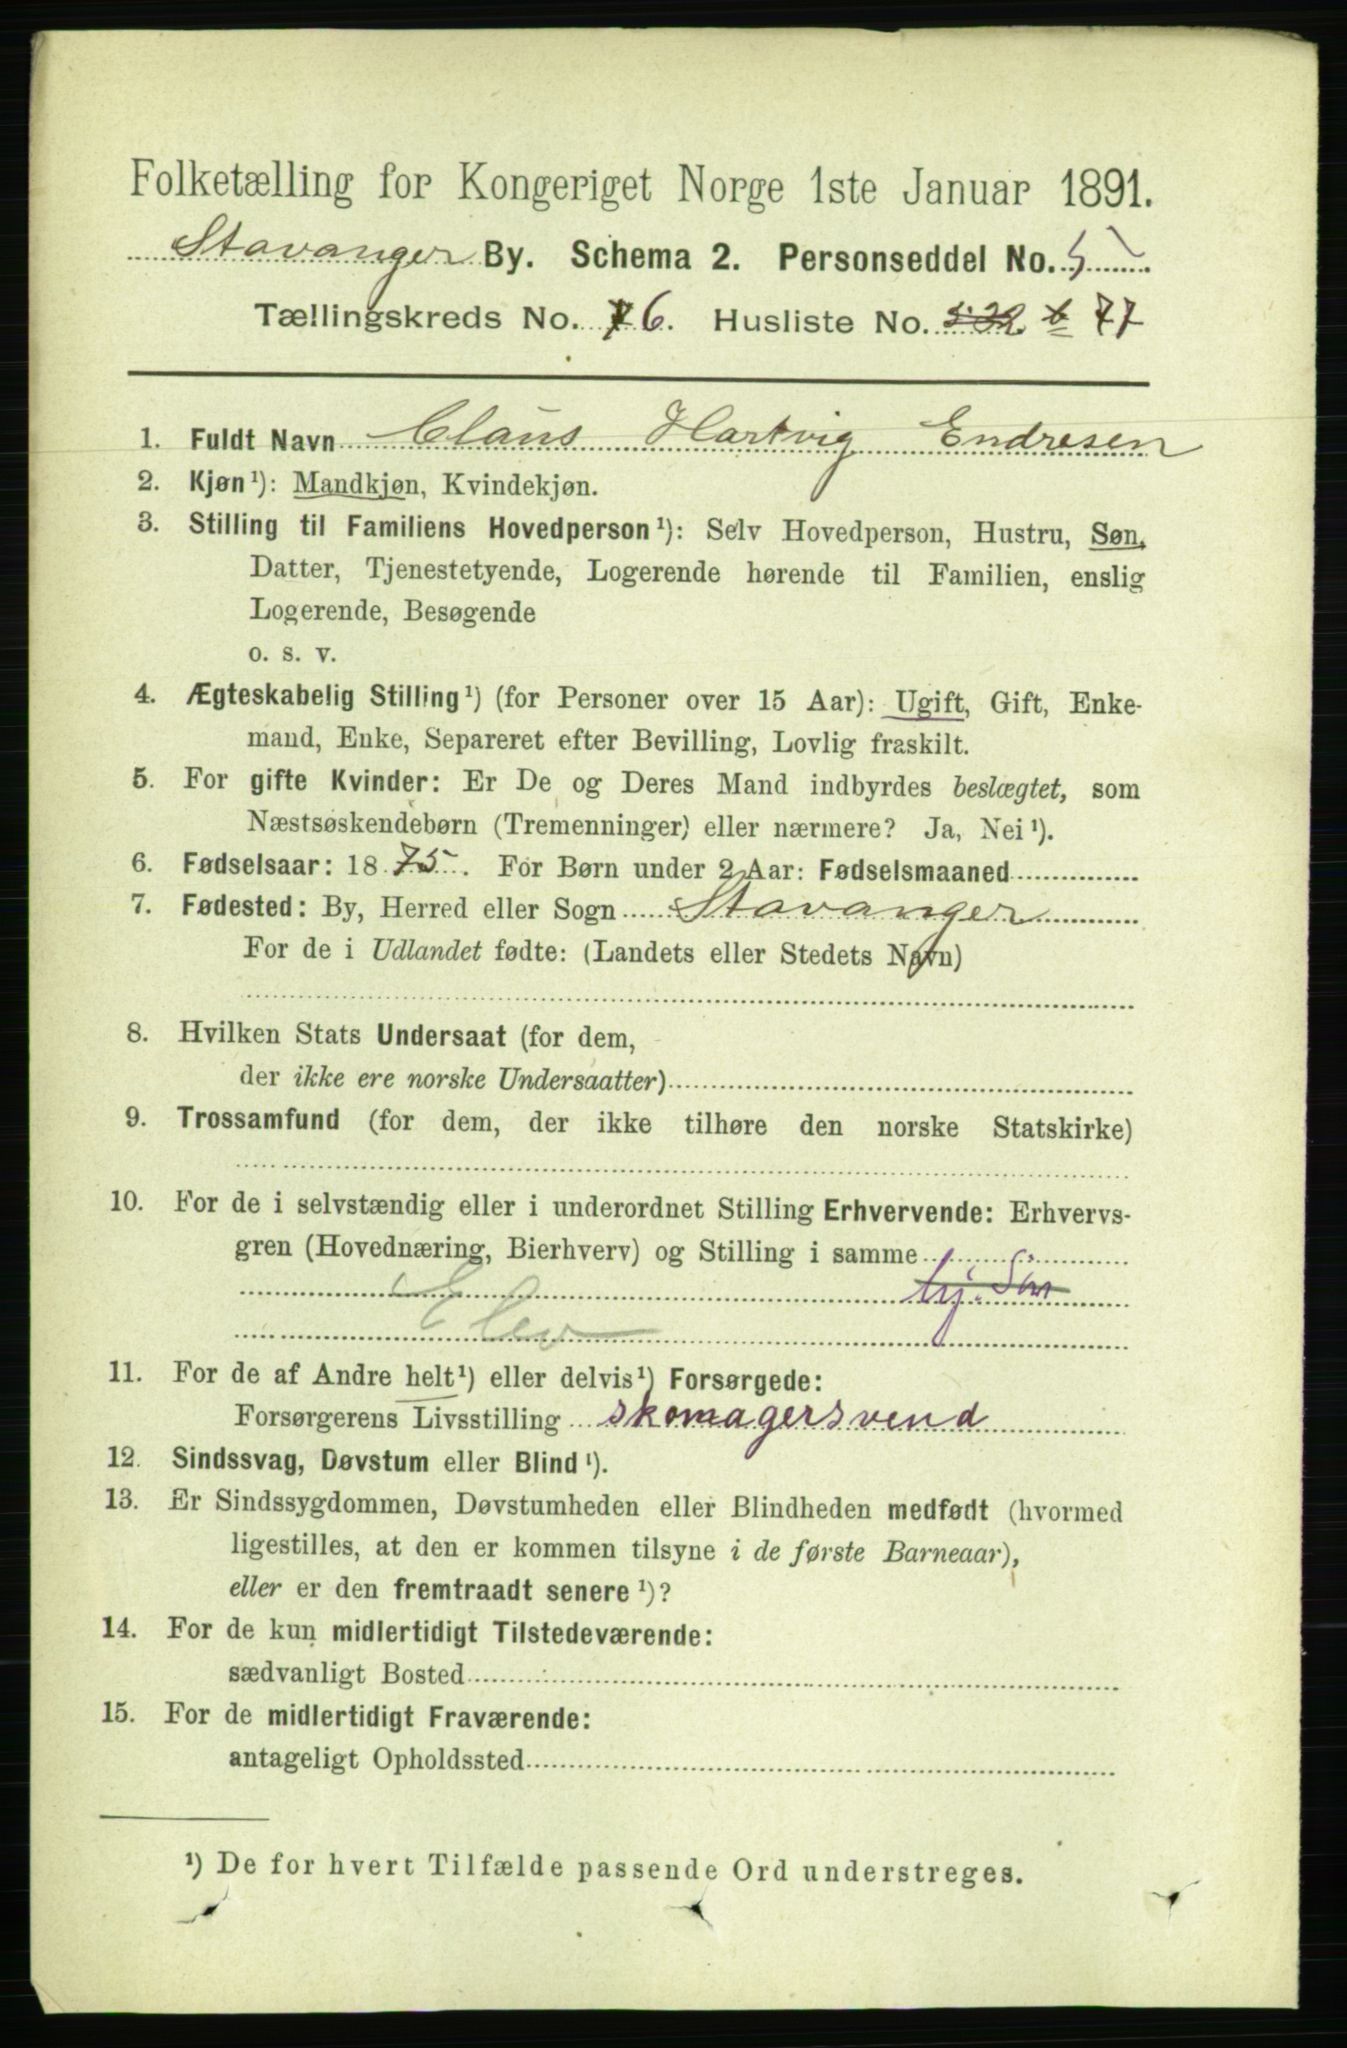 Folketælling for Kongeriget Norge 1ste Januar 1891.
Stavanger By. Schema 2. Personseddel No. 5
Tællingskreds No. 6. Husliste No. 77
1. Fuldt Navn Claus Hartvig Endresen
2. Kjøn ¹): Mandkjøn, Kvindekjøn.
3. Stilling til Familiens Hovedperson ¹): Selv Hovedperson, Hustru, Søn,
Datter, Tjenestetyende, Logerende hørende til Familien, enslig
Logerende, Besøgende
o. s. v.
4. Ægteskabelig Stilling ¹) (for Personer over 15 Aar): Ugift, Gift, Enke-
mand, Enke, Separeret efter Bevilling, Lovlig fraskilt.
5. For gifte Kvinder: Er De og Deres Mand indbyrdes beslægtet, som
Næstsøskendebørn (Tremenninger) eller nærmere? Ja, Nei ¹).
6. Fødselsaar: 1875. For Børn under 2 Aar: Fødselsmaaned
7. Fødested: By, Herred eller Sogn Stavanger
For de i Udlandet fødte: (Landets eller Stedets Navn)
8. Hvilken Stats Undersaat (for dem,
der ikke ere norske Undersaatter)
9. Trossamfund (for dem, der ikke tilhøre den norske Statskirke)
10. For de i selvstændig eller i underordnet Stilling Erhvervende: Erhvervs-
gren (Hovednæring, Bierhverv) og Stilling i samme
Elev
11. For de af Andre helt ¹) eller delvis ¹) Forsørgede:
Forsørgerens Livsstilling skomagersvend
12. Sindssvag, Døvstum eller Blind ¹).
13. Er Sindssygdommen, Døvstumheden eller Blindheden medfødt (hvormed
ligestilles, at den er kommen tilsyne i de første Barneaar),
eller er den fremtraadt senere ¹)?
14. For de kun midlertidigt Tilstedeværende:
sædvanligt Bosted
15. For de midlertidigt Fraværende:
antageligt Opholdssted
¹) De for hvert Tilfælde passende Ord understreges.